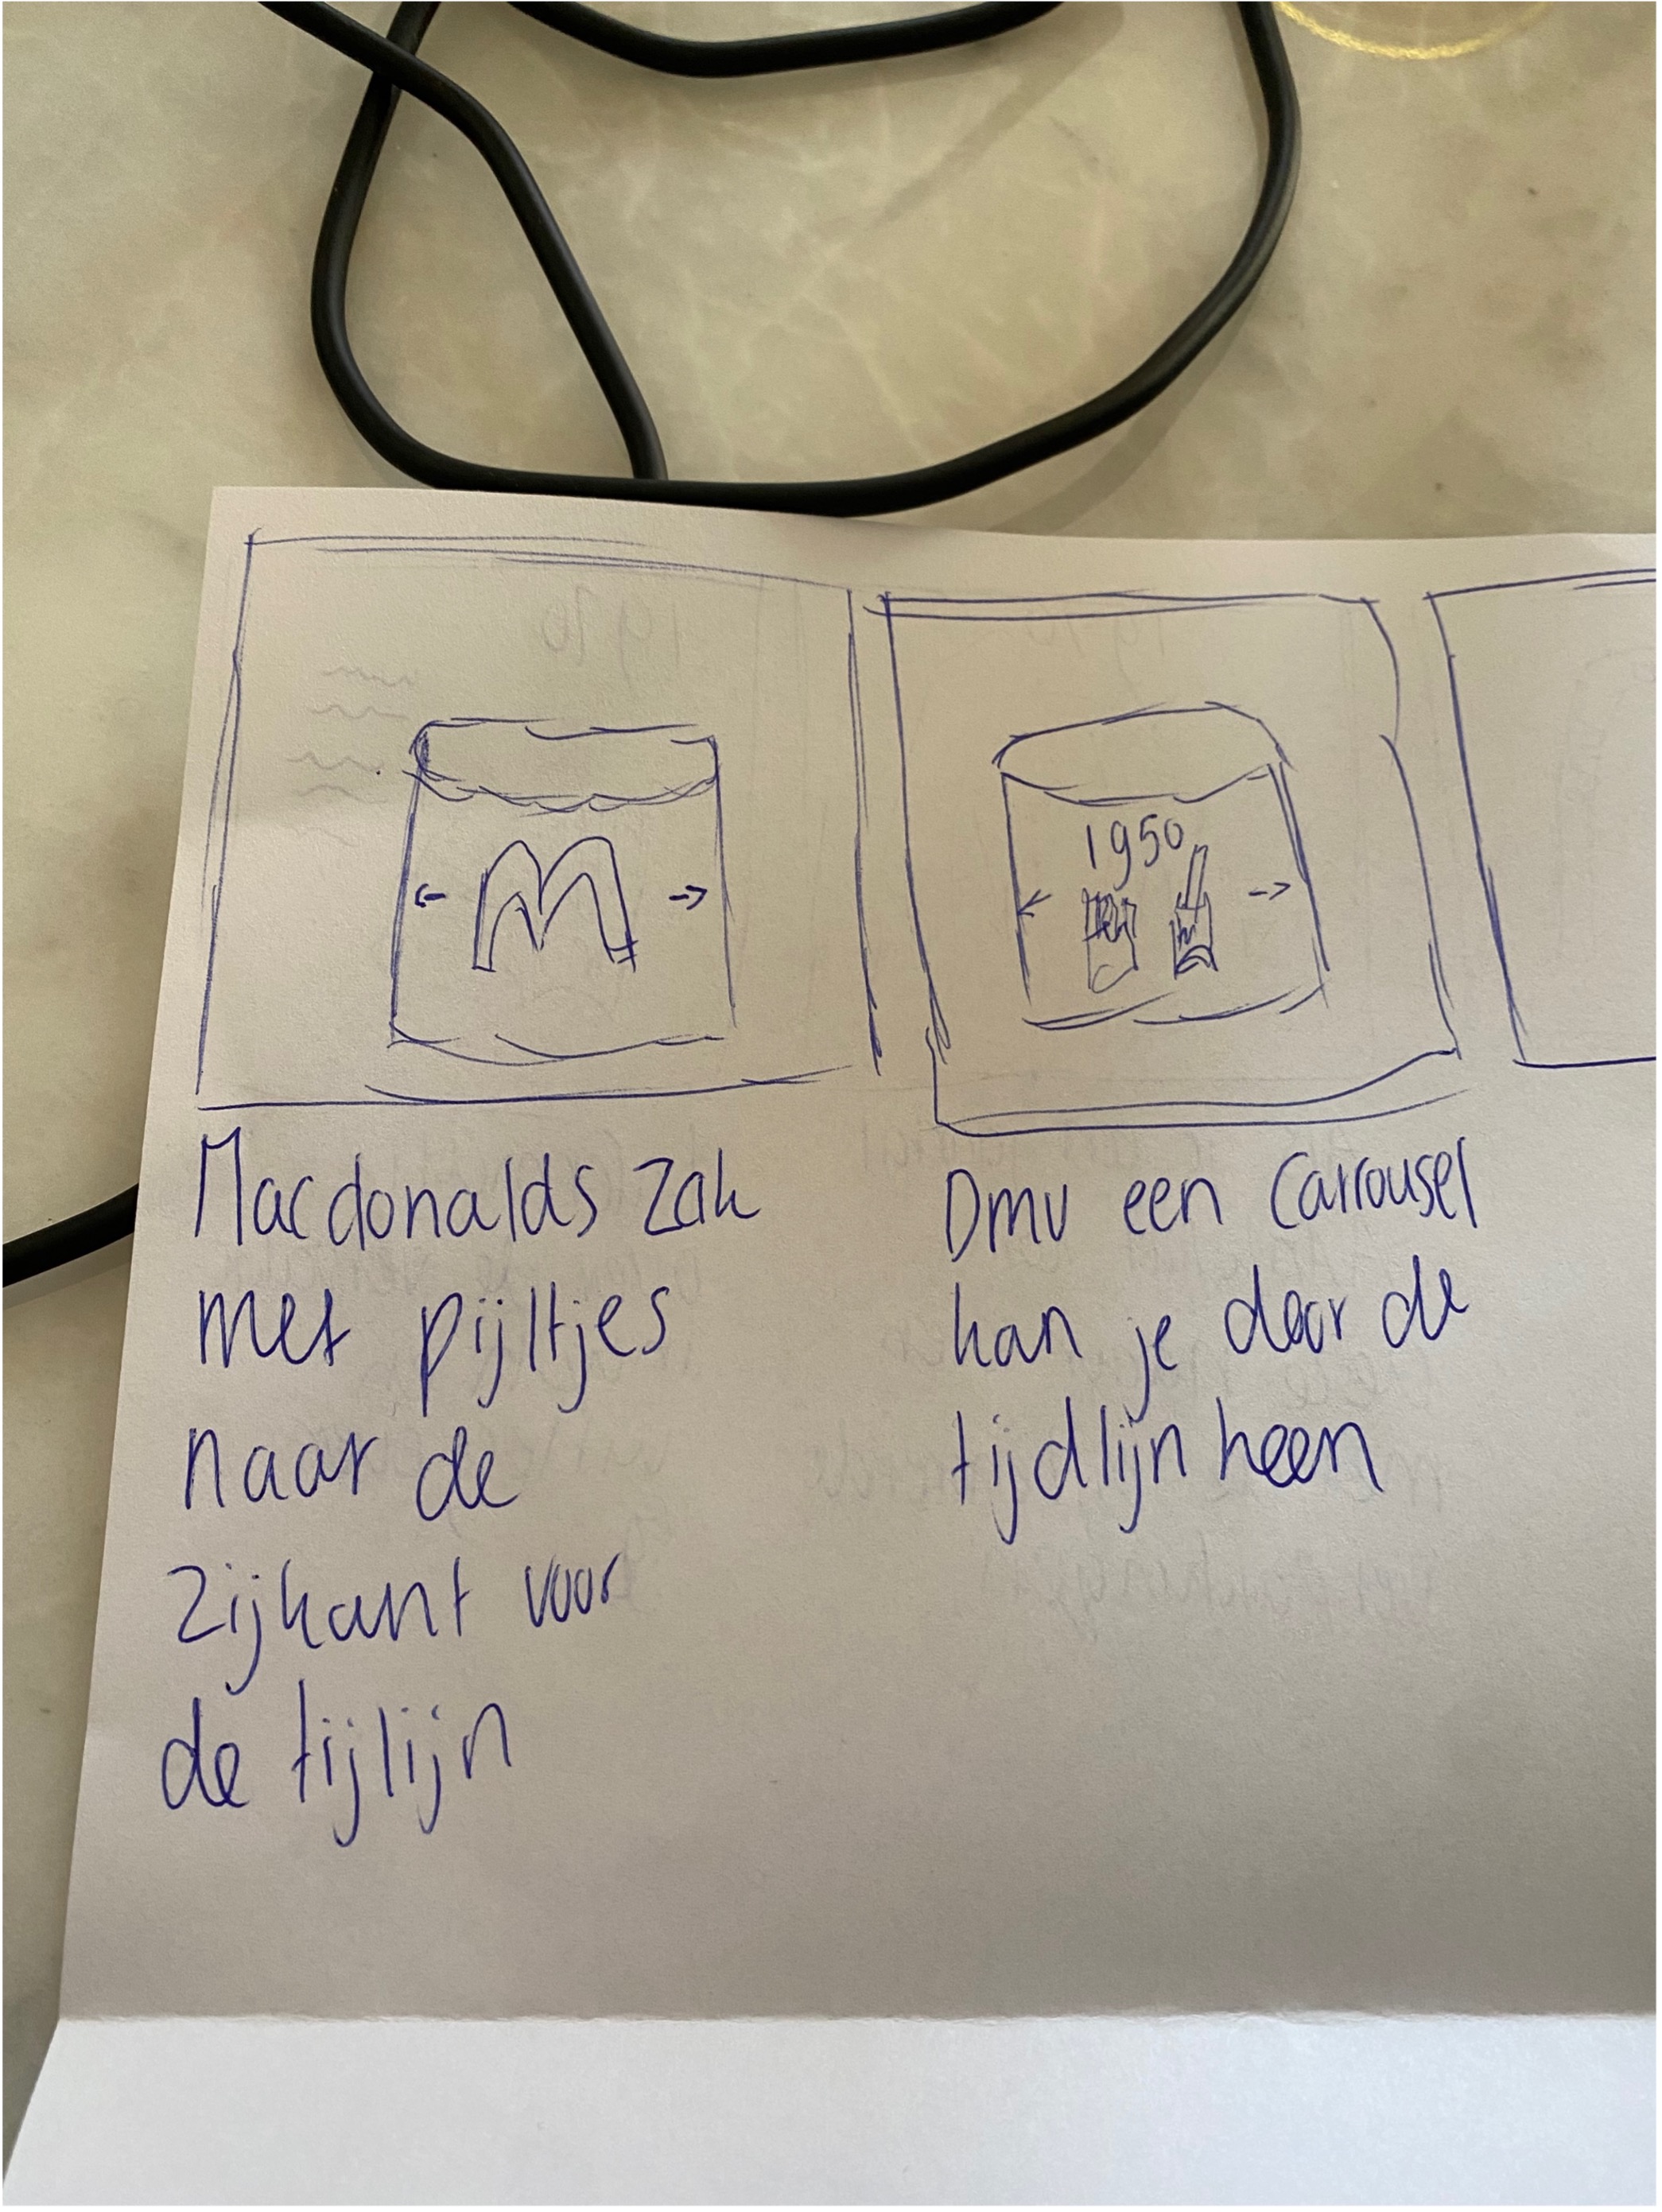 M
1950
Macdonalds zak
met pijltjes
naar de
zijkant voor
de tijlijn
Dmv een Carrousel
kan je door de
tijdlijn heen